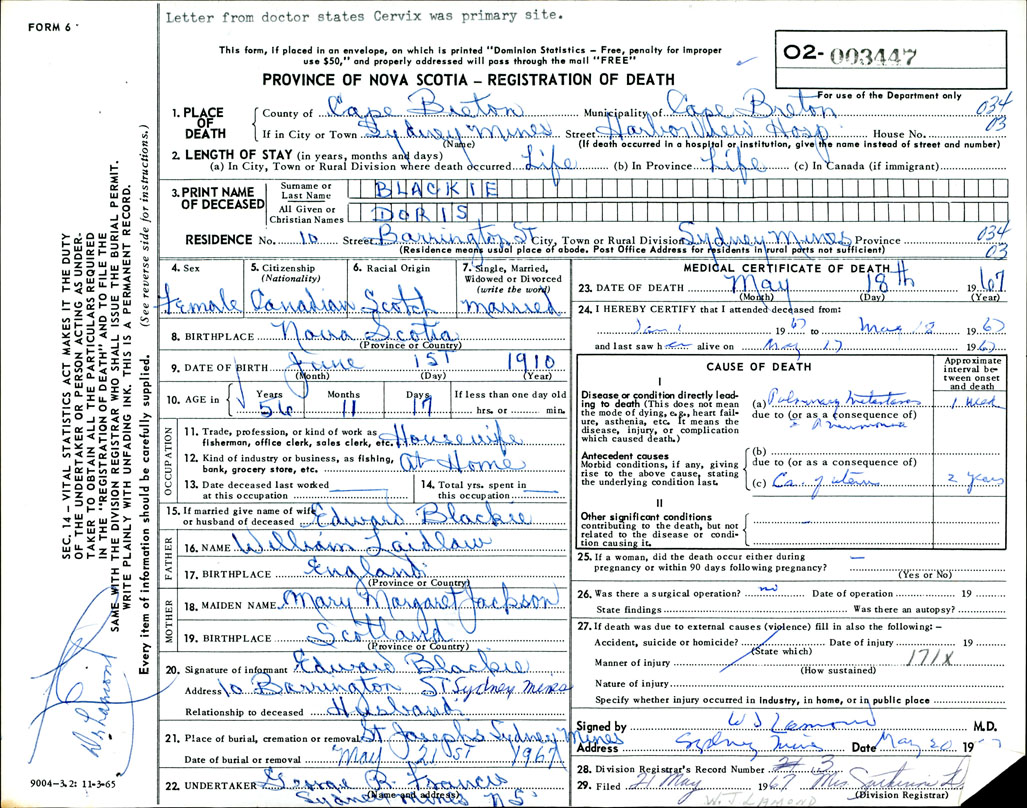 Letter from doctor states Cervix was primary site.
FORM 6
This form, if placed in an envelope, on which is printed "Dominion Statistics – Free, penalty for improper
use $50," and properly addressed will pass through the mail "FREE"
O2- 003447
PROVINCE OF NOVA SCOTIA – REGISTRATION OF DEATH
For use of the Department only
034
03
1. PLACE OF DEATH
County of Cape Breton Municipality of Cape Breton
If in City or Town Sydney Mines Street Harbor View Hosp. House No.
(Name) (If death occurred in a hospital or institution, give the name instead of street and number)
2. LENGTH OF STAY (in years, months and days)
(a) In City, Town or Rural Division where death occurred Life (b) In Province Life (c) In Canada (if immigrant)
3. PRINT NAME OF DECEASED
Surname or Last Name BLACKIE
All Given or Christian Names DORIS
RESIDENCE No. 10 Street Barrington St City, Town or Rural Division Sydney Mines Province
034
03
(Residence means usual place of abode. Post Office Address for residents in rural parts not sufficient)
4. Sex
Female
5. Citizenship
(Nationality)
Canadian
6. Racial Origin
Scotch
7. Single, Married,
Widowed or Divorced
(write the word)
married
8. BIRTHPLACE Nova Scotia
(Province or Country)
9. DATE OF BIRTH June 1ST 1910
(Month) (Day) (Year)
10. AGE in
Years Months Days If less than one day old
56 11 17 hrs. or min.
OCCUPATION
11. Trade, profession, or kind of work as
fisherman, office clerk, sales clerk, etc. Housewife
12. Kind of industry or business, as fishing,
bank, grocery store, etc. At Home
13. Date deceased last worked
at this occupation
14. Total yrs. spent in
this occupation
15. If married give name of wife
or husband of deceased Edward Blackie
FATHER
16. NAME William Laidlaw
17. BIRTHPLACE England
(Province or Country)
MOTHER
18. MAIDEN NAME Mary Margaret Jackson
19. BIRTHPLACE Scotland
(Province or Country)
20. Signature of informant Edward Blackie
Address 10 Barrington ST Sydney Mines
Relationship to deceased Husband
21. Place of burial, cremation or removal St Josephs Sydney Mines
Date of burial or removal May 21ST 1967
22. UNDERTAKER George R. Francis
(Name and address)
Sydney Mines NS
MEDICAL CERTIFICATE OF DEATH
23. DATE OF DEATH May 18th 1967
(Month) (Day) (Year)
24. I HEREBY CERTIFY that I attended deceased from:
Jan 1 1967 to May 18 1967
and last saw her alive on May 17 1967
CAUSE OF DEATH
Approximate
interval be-
tween onset
and death
I
Disease or condition directly lead-
ing to death (This does not mean
the mode of dying, e.g., heart fail-
ure, asthenia, etc. It means the
disease, injury, or complication
which caused death.)
(a) Pulmonary Metastases 1 week
due to (or as a consequence of)
Pneumonia
Antecedent causes
Morbid conditions, if any, giving
rise to the above cause, stating
the underlying condition last.
(b)
due to (or as a consequence of)
(c) Ca. of uterus 2 years
II
Other significant conditions
contributing to the death, but not
related to the disease or condi-
tion causing it.
25. If a woman, did the death occur either during
pregnancy or within 90 days following pregnancy?
(Yes or No)
26. Was there a surgical operation? no Date of operation 19
State findings Was there an autopsy?
27. If death was due to external causes (violence) fill in also the following: –
Accident, suicide or homicide? Date of injury 19
(State which)
Manner of injury 171X
(How sustained)
Nature of injury
Specify whether injury occurred in industry, in home, or in public place
Signed by W J Lamond M.D.
Address Sydney Mines Date May 20 1967
28. Division Registrar's Record Number 3
29. Filed 21 May 1967 Mrs
(Division Registrar)
W.J LAMOND
SEC. 14 – VITAL STATISTICS ACT MAKES IT THE DUTY
OF THE UNDERTAKER OR PERSON ACTING AS UNDER-
TAKER TO OBTAIN ALL THE PARTICULARS REQUIRED
IN THE "REGISTRATION OF DEATH" AND TO FILE THE
SAME WITH THE DIVISION REGISTRAR WHO SHALL ISSUE THE BURIAL PERMIT.
WRITE PLAINLY WITH UNFADING INK. THIS IS A PERMANENT RECORD.
Every item of information should be carefully supplied. (See reverse side for instructions.)
Dr Lamont
9004-3.2: 11-3-65